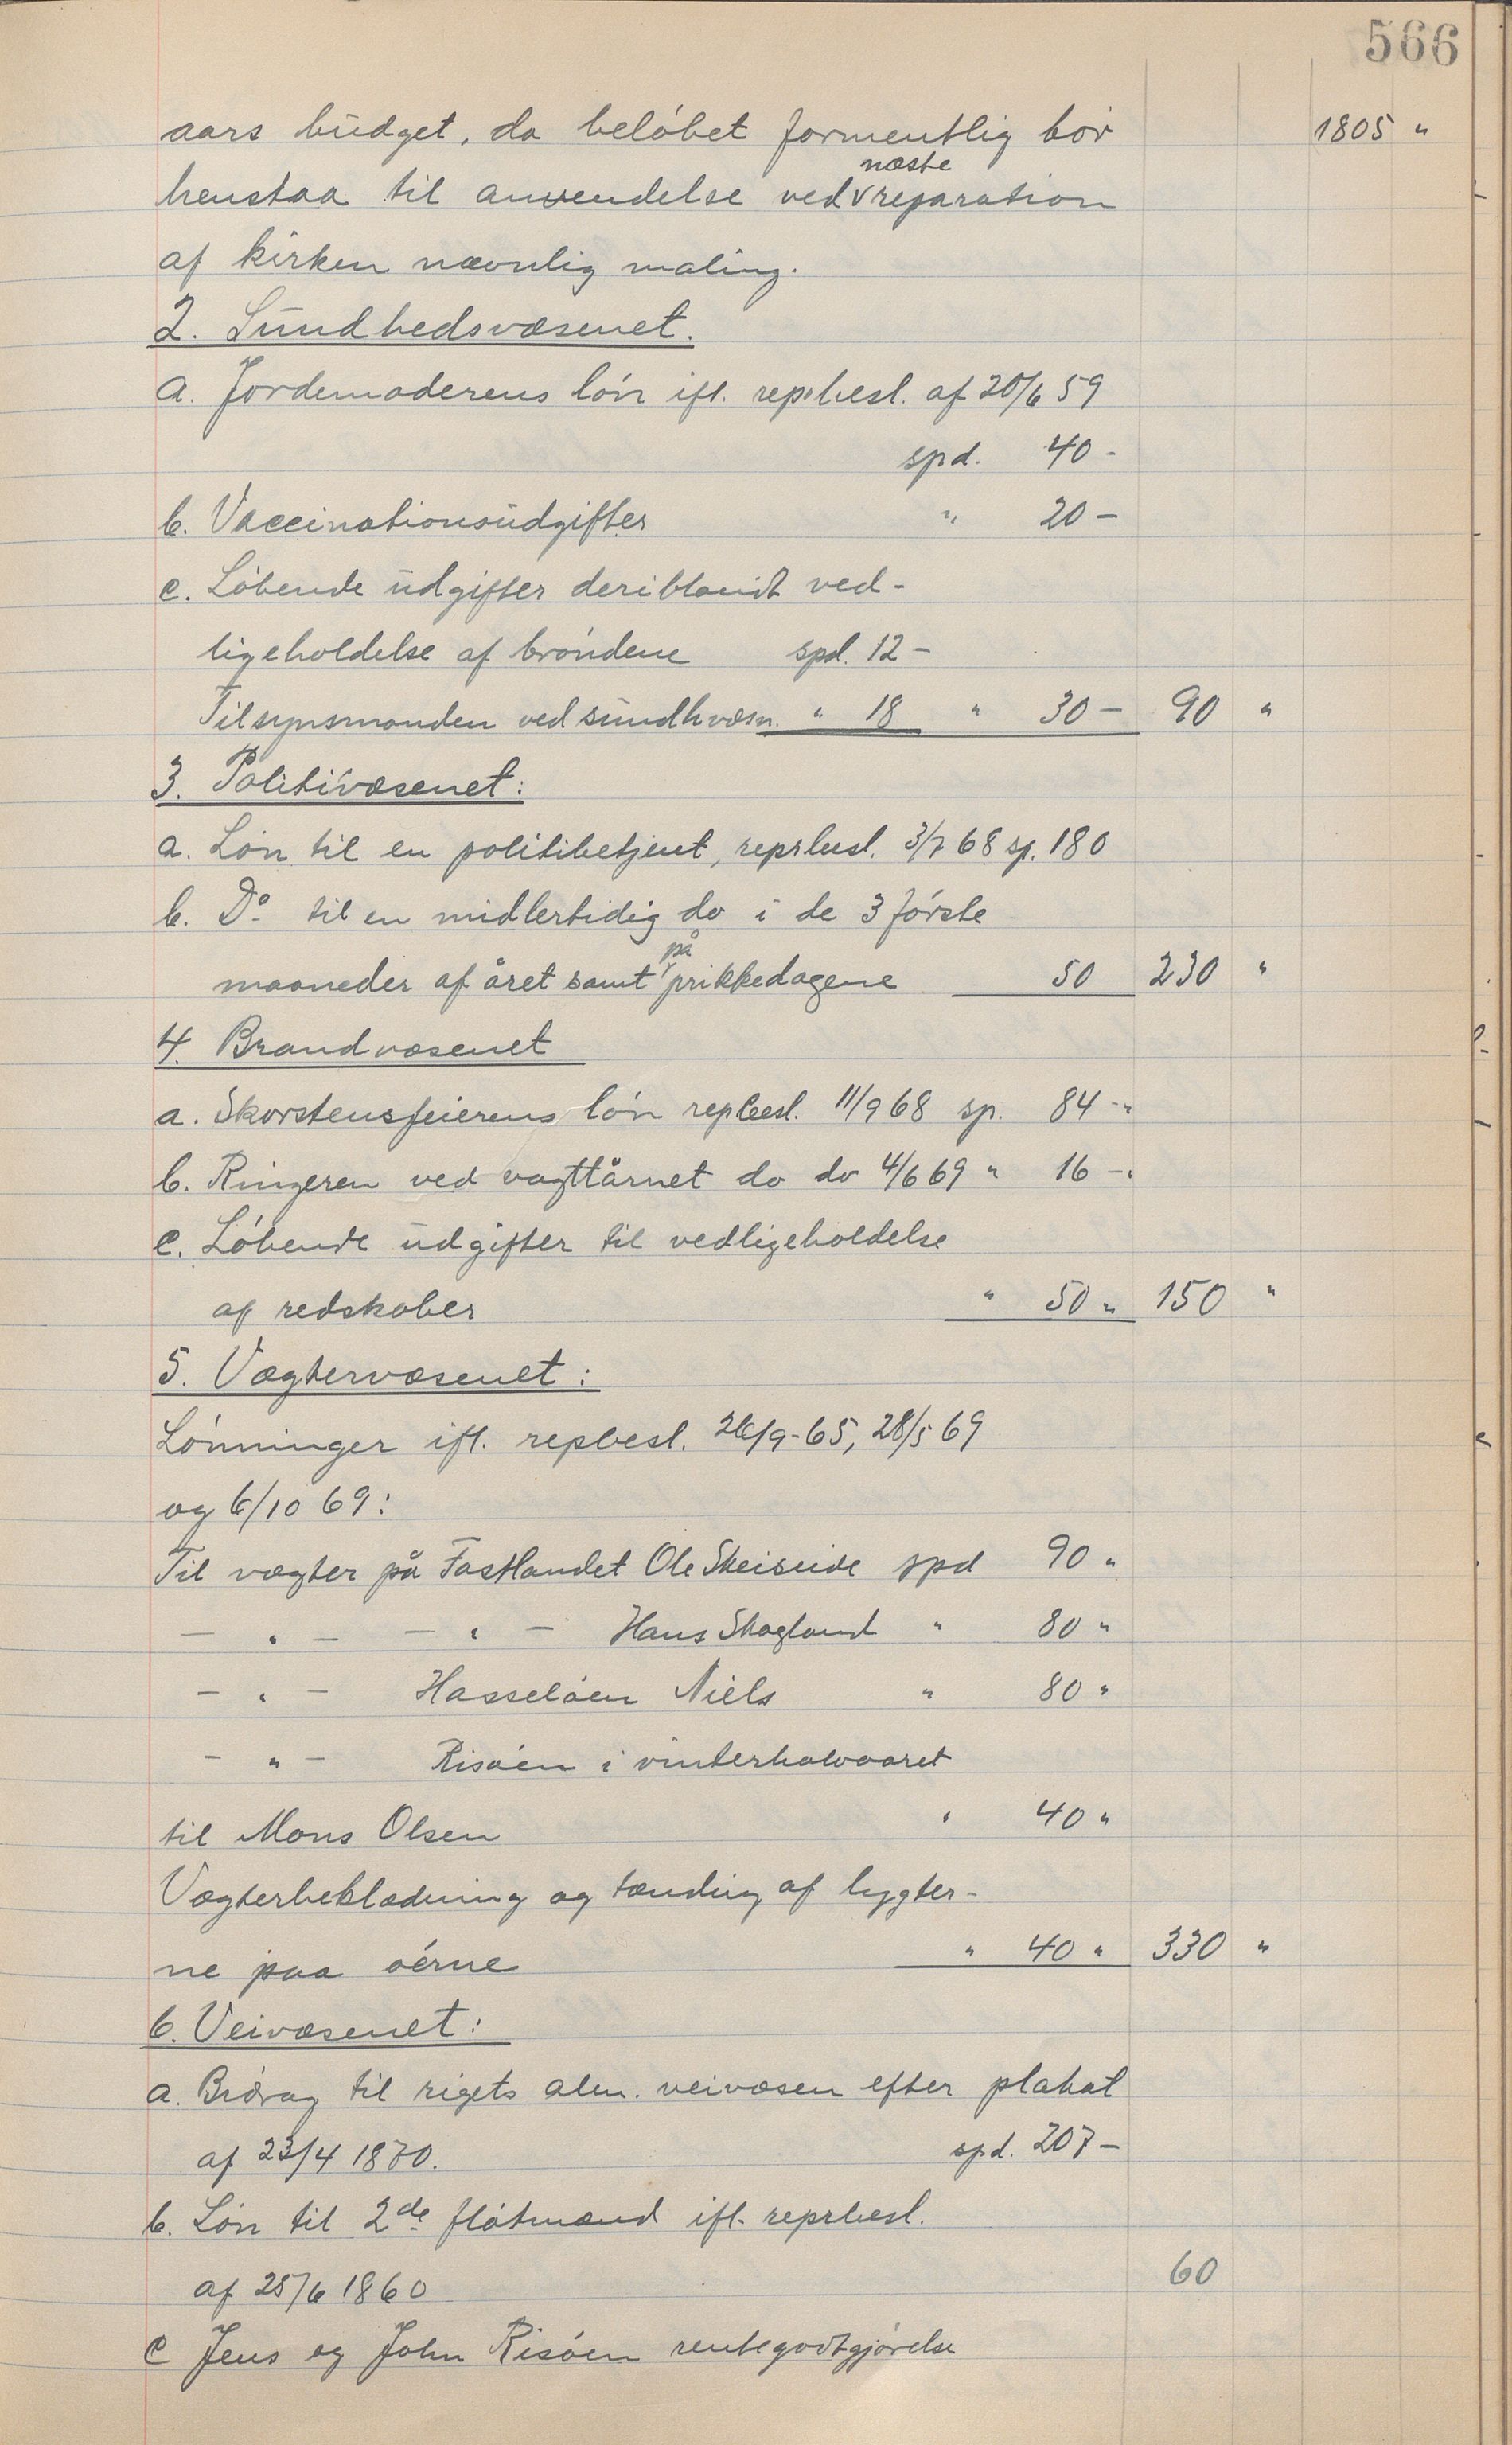 566
aars budget, da beløbet formentlig bør 1805 "
næste
henstaa til anvendelse ved v reparation
af kirken nævnlig maling.
2. Sundhedsvæsenet.
a. Jordemoderens løn ifl. reprbesl. af 20/6 59
spd. 40 -
b. Vaccinationsudgifter " 20 -
c. Løbende udgifter deriblandt ved-
ligeholdelse af brøndene spd. 12 -
Tilsynsmanden ved sundhvæsn. " 18 " 30 - 90 "
3. Politivæsenet:
a. Løn til en politibetjent, reprbesl. 3/7 68 sp. 180
b. Do til en midlertidig do i de 3 første
på
maaneder af året samt v prikkedagene 50 230 "
4. Brandvæsenet
a. Skorstensfeierens løn repbesl. 11/9 68 sp. 84 - "
b. Ringeren ved vagttårnet do do 4/6 69 " 16 - "
c. Løbende udgifter til vedligeholdelse
af redskaber " 50 " 150 "
5. Vægtervæsenet:
Lønninger ifl. repbesl. 26/9-65, 28/5 69
og 6/10 69:
Til vægter på Fastlandet Ole Skeiseide spd 90 "
— " — — " — Hans Skogland " 80 "
— " — Hasseløen Niels " 80 "
— " — Risøen i vinterhalvaaret
til Mons Olsen " 40 "
Vægterbeklædning og tænding af lygter-
ne paa øerne " 40 " 330 "
6. Veivæsenet:
a. Bidrag til rigets alm. veivæsen efter plakat
af 23/4 1870. spd. 207 -
b. Løn til 2de fløtmænd ifl. reprbesl.
af 25/6 1860 60
c Jens og John Risøen rentegodtgjørelse